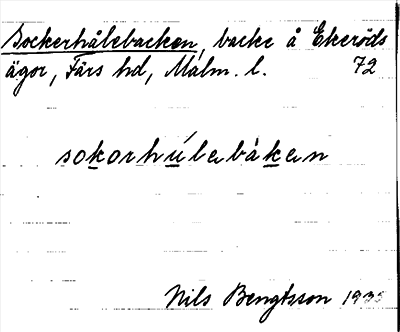 Sockerhålebacken, backe å Ekeröds
ägor, Färs hd, Malm. l. 72
sokorhúlebáken
Nils Bengtsson 1935